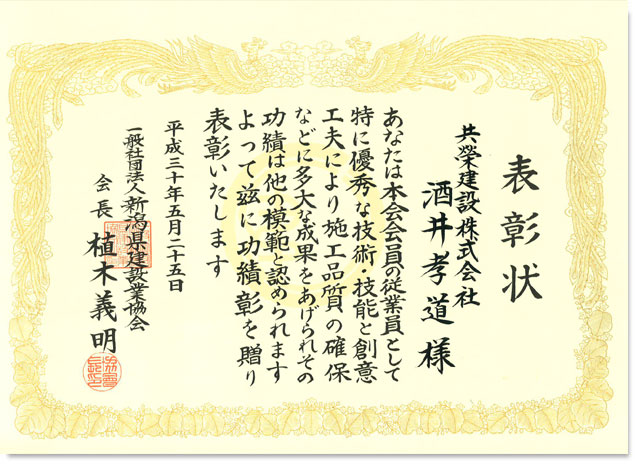 表彰状
共榮建設株式会社
酒井孝道様
あなたは本会会員の従業員として
特に優秀な技術・技能と創意
工夫により施工品質の確保
などに多大な成果をあげられその
功績は他の模範と認められます
よって茲に功績彰を贈り
表彰いたします
平成三十年五月二十五日
一般社団法人新潟県建設業協会
会長 植木義明